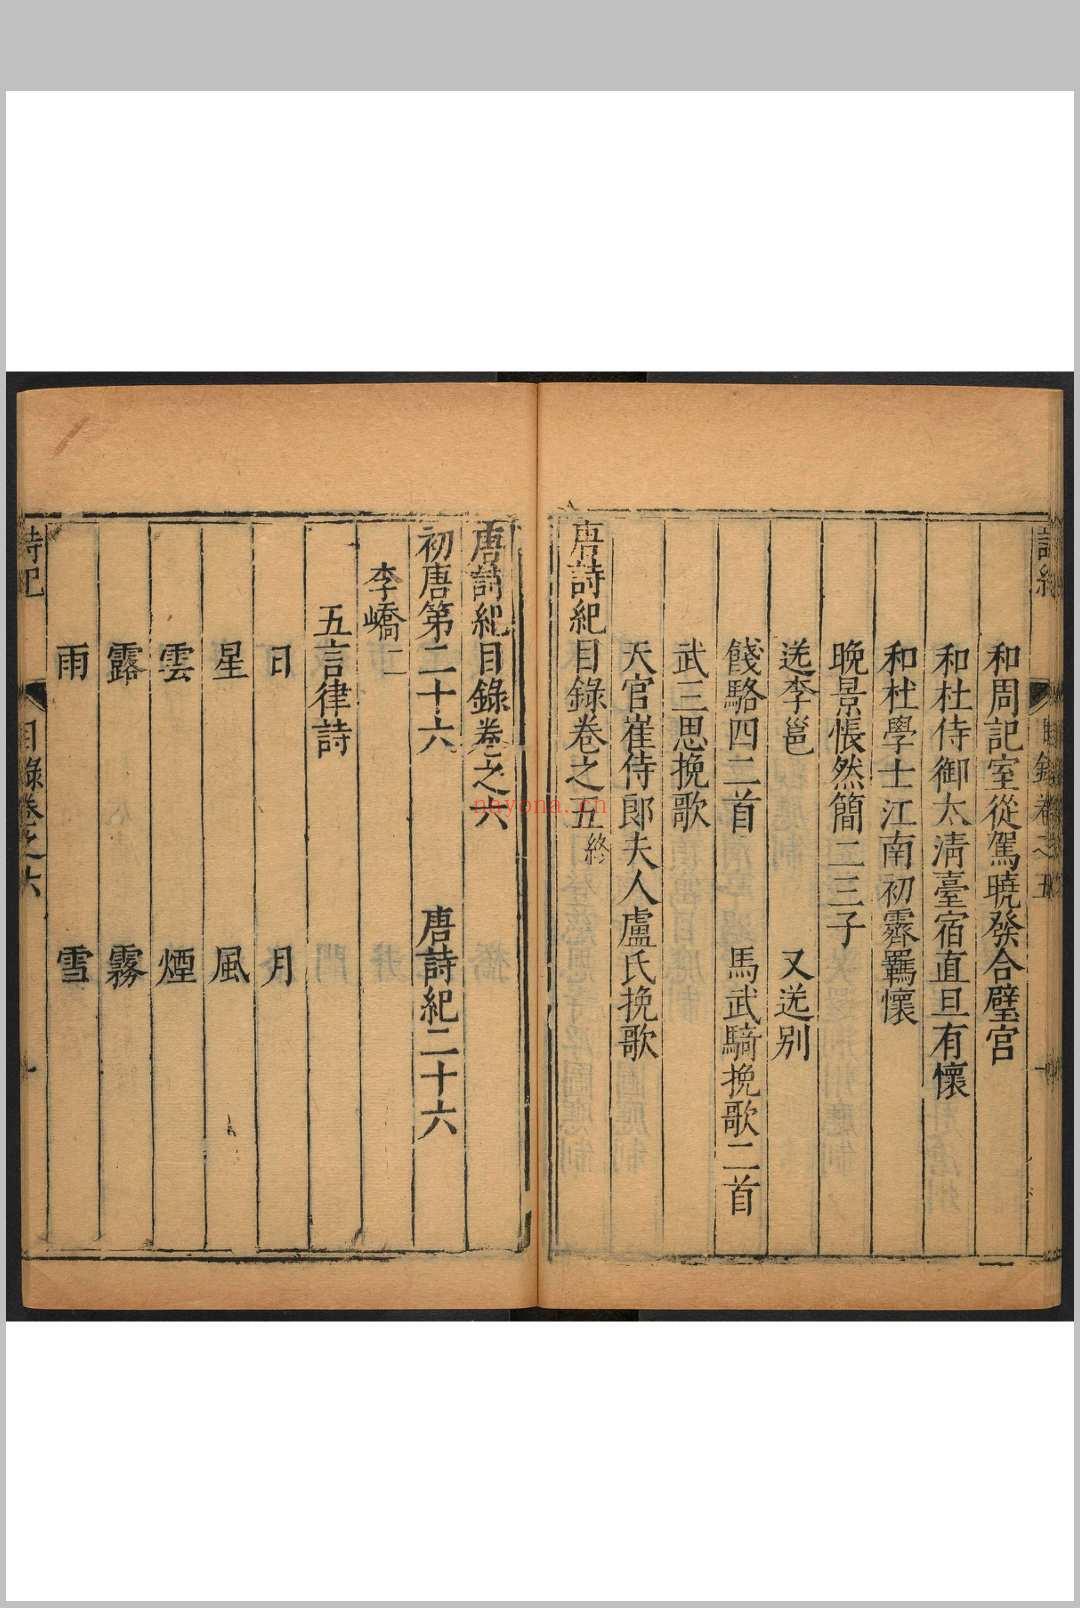 和周記室從駕曉發合璧宮
和杜侍御太清臺宿直旦有懷
和杜學士江南初霽羈懷
晚景悵然簡二三子
送李邕 又送别
餞駱四二首 馬武騎挽歌二首
武三思挽歌
天官崔侍郎夫人盧氏挽歌
唐詩紀目錄卷之五終
唐詩紀目錄卷之六
初唐第二十六 唐詩紀二十六
李嶠二
五言律詩
日 月
星 風
雲 煙
露 霧
雨 雪
詩紀 目錄卷之六
nayona.cn